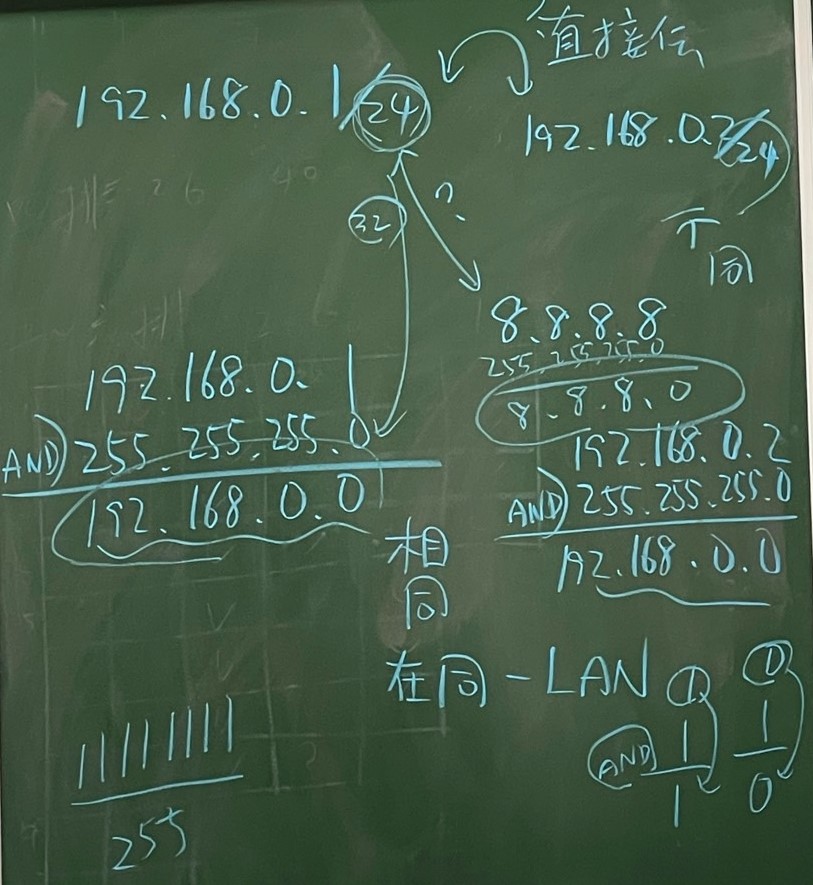 直接传
192.168.0.1/24
192.168.0.2/24
32
?
不
同
8.8.8.8
255.255.255.0
8.8.8.0
192.168.0.1
AND) 255.255.255.0
192.168.0.0
192.168.0.2
AND) 255.255.255.0
192.168.0.0
相
同
在同一LAN
11111111
255
1
AND 1
1
0
1
0